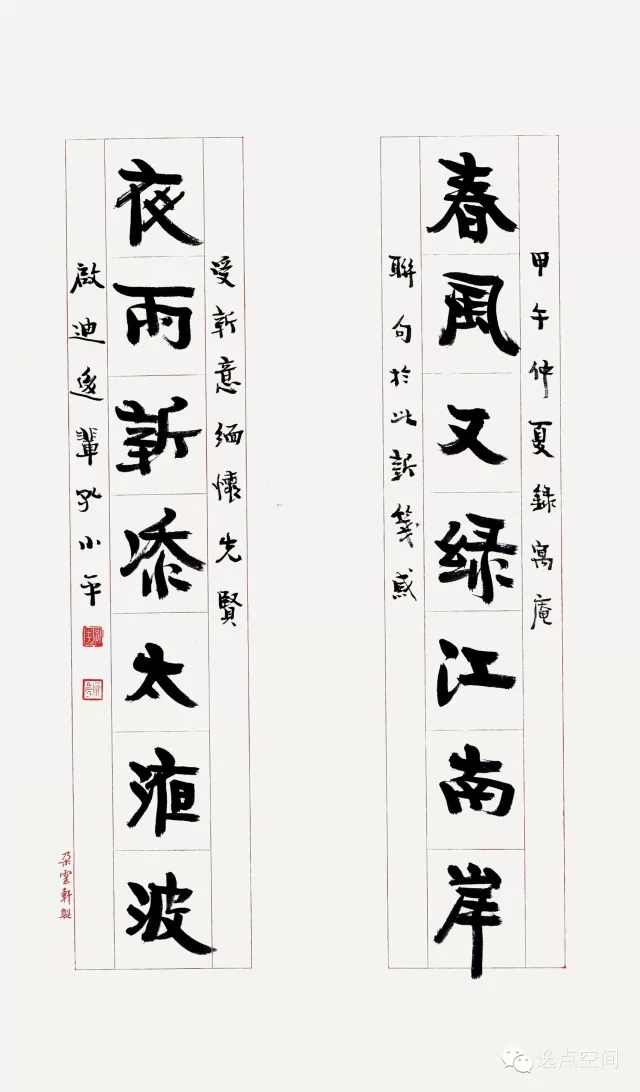 甲午仲夏錄寓庵
春風又绿江南岸
聯句於此新箋感
受新意緬懷先賢
夜雨新添太液波
啟迪後輩孔小平
朵雲軒製
逸点空间